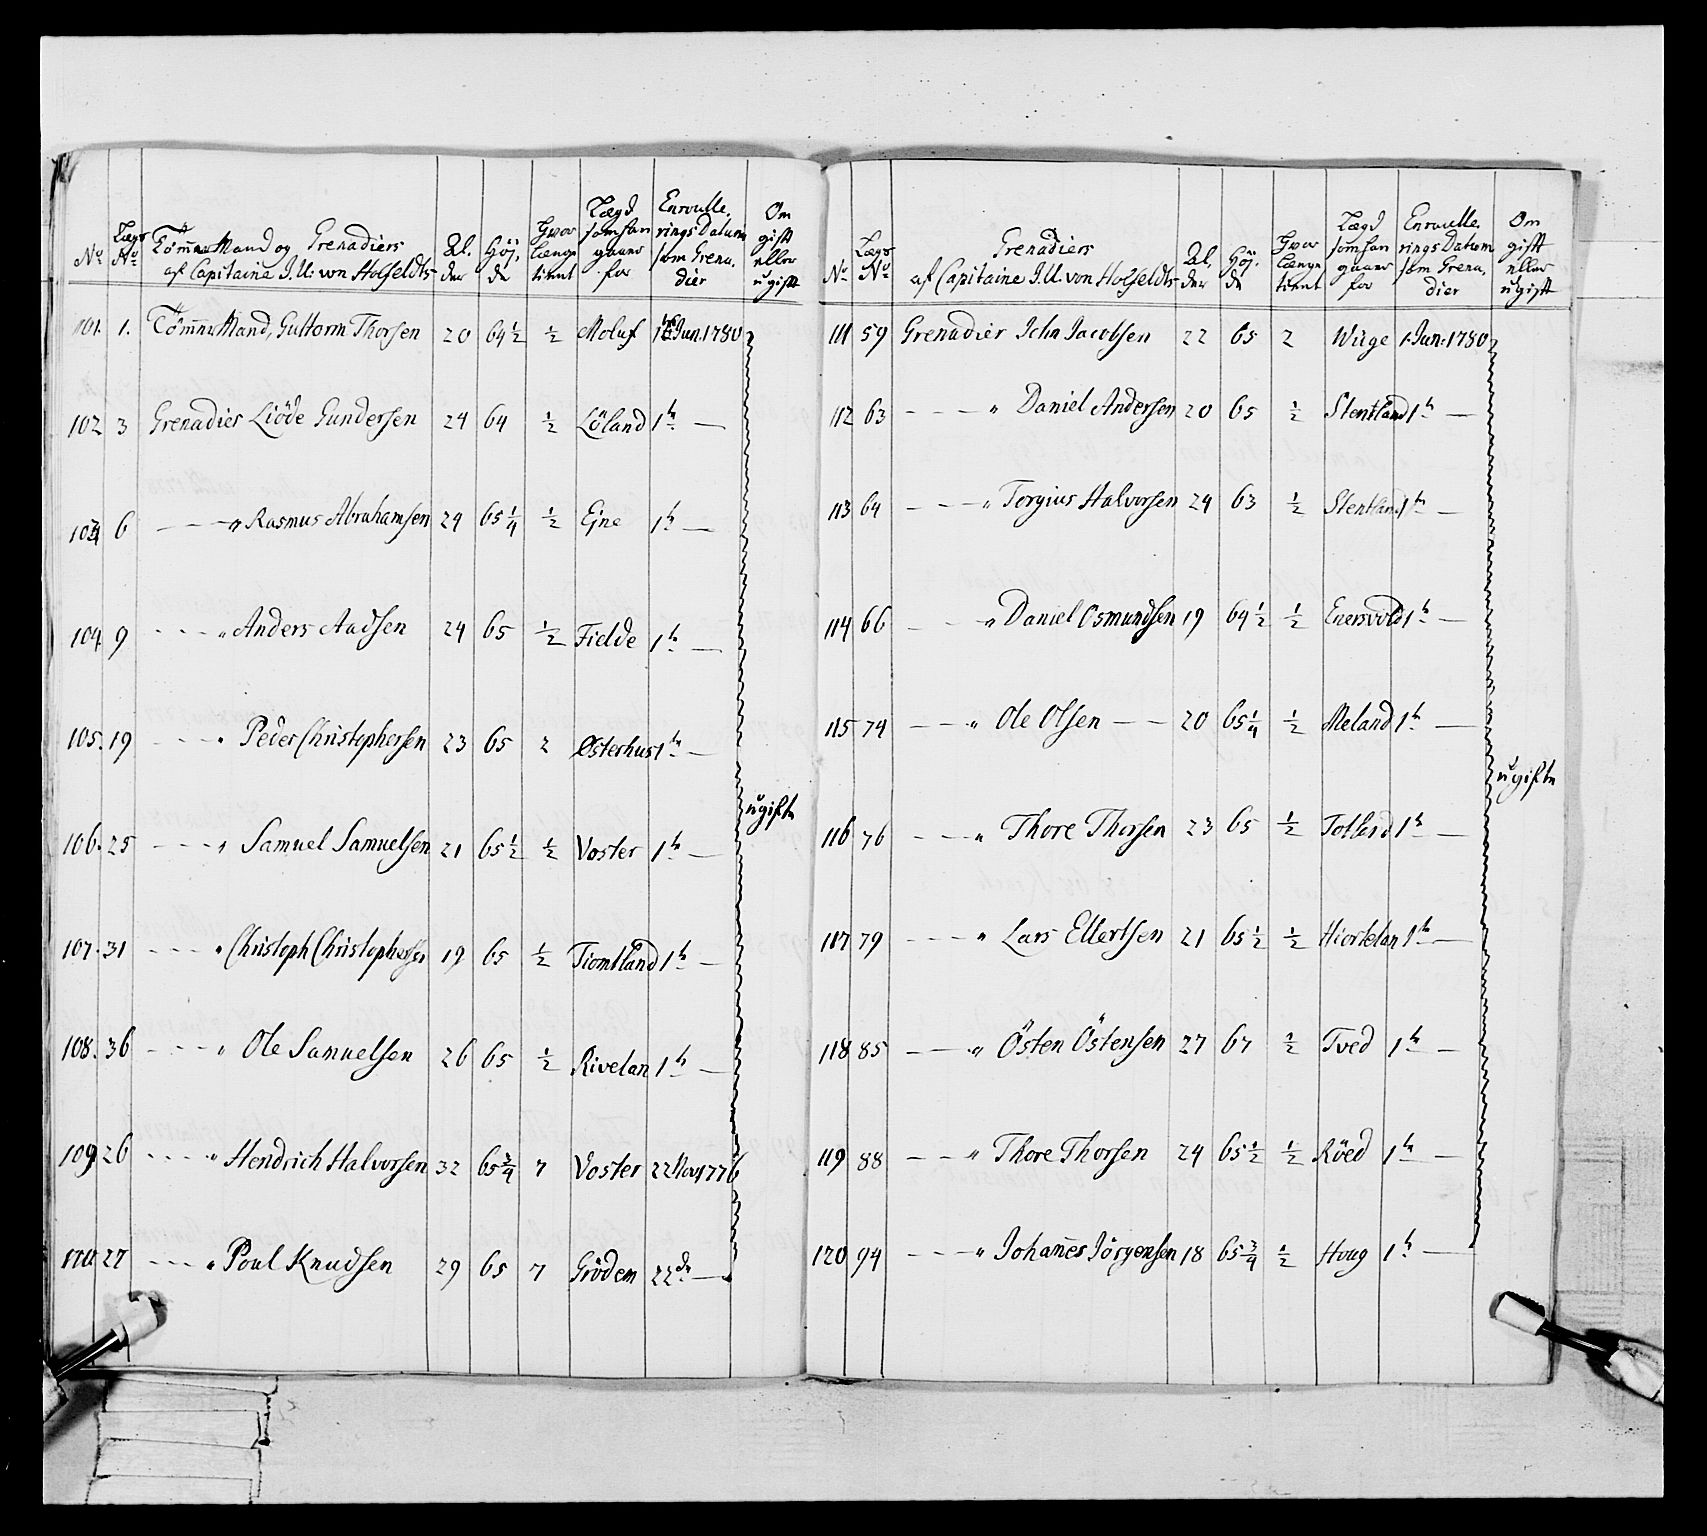 No Lægs No Tömmer Mand og Grenadiers af Capitaine I. U. von Holfeldts Al. der Höj. de Hvor længe tient Lægd som han gaaer for Enroulle. rings Datum som Grena. dier Om gift eller ugift
101. 1. Tömmer Mand, Guttorm Thorsen 20 64½ ½ Moluf 1 Jun. 1780
102 3 Grenadier Liöde Gundersen 24 64 ½ Löland 1te —
103 6 - - - " Rasmus Abrahamsen 24 65¼ ½ Ejne 1te —
104 9 - - - " Anders Aadsen 24 65 ½ Fielde 1te —
105. 19 - - - " Peder Christophersen 23 65 2 Østerhus 1te —
106. 25 - - - " Samuel Samuelsen 21 65½ ½ Voster 1te —
ugifte
107. 31 - - - " Christoph Christophersen 19 65 ½ Tiomtland 1te —
108. 36 - - - " Ole Samuelsen 26 65 ½ Rivelan 1te —
109 26 - - - " Hendrich Halvorsen 32 65¾ 7 Voster 22 Nov 1776
110. 27 - - - " Poul Knudsen 29 65 7 Grödem 22de —
No Lægs No Grenadiers af Capitaine I. U. von Holfeldts Al. der Höj. de Hvor længe tient Lægd som han gaaer for Enroulle. rings Datum som Grena. dier Om gift eller ugift
111 59 Grenadier John Jacobsen 22 65 2 Wiige 1. Jun: 1780
112 63 - - - " Daniel Andersen 20 65 ½ Stentland 1te —
113 64 - - - " Torgius Halvorsen 24 63 ½ Stentland 1te —
114 66 - - - " Daniel Osmundsen 19 64½ ½ Enersvold 1te —
115 74 - - - " Ole Olsen - - 20 65¼ ½ Meland 1te —
ugifte
116 76 - - - " Thore Thorsen 23 65 ½ 1te —
117 79 - - - " Lars Ellertsen 21 65½ ½ Hiorlelan 1te —
118 85 - - - " Östen Östensen 27 67 ½ Tved 1te —
119 88 - - - " Thore Thorsen 24 65½ ½ Röed 1te —
120 94 - - - " Johannes Jörgensen 18 65¾ ½ Houg 1te —